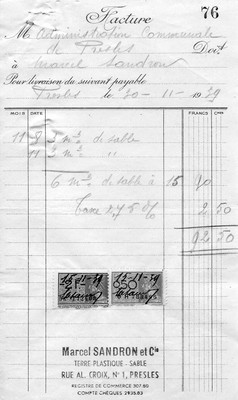 Facture 76
M Administration Communale
de Presles Doit
à Marcel Sandron
Pour livraison du suivant payable
Presles le 30-11-1939
MOIS DATE FRANCS CMES
11 8 3 m³ de sable
11 3 m³ "
6 m³ de sable à 15 90
Taxe 2,75 % 2 50
92 50
Marcel SANDRON et Cie
TERRE PLASTIQUE - SABLE
RUE AL. CROIX, N° 1, PRESLES
REGISTRE DE COMMERCE 307.80
COMPTE CHÈQUES 2935.83